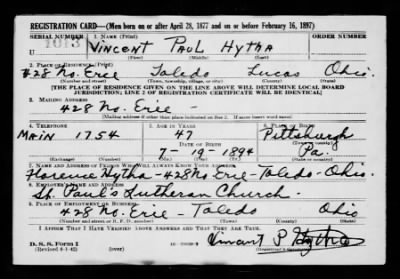 REGISTRATION CARD—(Men born on or after April 28, 1877 and on or before February 16, 1897)
SERIAL NUMBER 1. NAME (Print) ORDER NUMBER
U 1013 VINCENT PAUL HYTHA
(First) (Middle) (Last)
2. PLACE OF RESIDENCE (Print)
428 No. Erie Toledo Lucas Ohio.
(Number and street) (Town, township, village, or city) (County) (State)
[THE PLACE OF RESIDENCE GIVEN ON THE LINE ABOVE WILL DETERMINE LOCAL BOARD
JURISDICTION; LINE 2 OF REGISTRATION CERTIFICATE WILL BE IDENTICAL]
3. MAILING ADDRESS
428 No. Erie —
[Mailing address if other than place indicated on line 2. If same insert word same]
4. TELEPHONE 5. AGE IN YEARS 6. PLACE OF BIRTH
MAIN 1754 47 Pittsburgh
DATE OF BIRTH (Town or county)
7 – 19 – 1894 Pa.
(Mo.) (Day) (Yr.) (State or country)
7. NAME AND ADDRESS OF PERSON WHO WILL ALWAYS KNOW YOUR ADDRESS
Florence Hytha – 428 No. Erie – Toledo – Ohio.
8. EMPLOYER'S NAME AND ADDRESS
St. Paul's Lutheran Church.
9. PLACE OF EMPLOYMENT OR BUSINESS
428 No. Erie – Toledo Ohio
(Number and street or R. F. D. number) (Town) (County) (State)
I AFFIRM THAT I HAVE VERIFIED ABOVE ANSWERS AND THAT THEY ARE TRUE.
D. S. S. Form 1
(Revised 4-1-42) Vincent P. Hytha